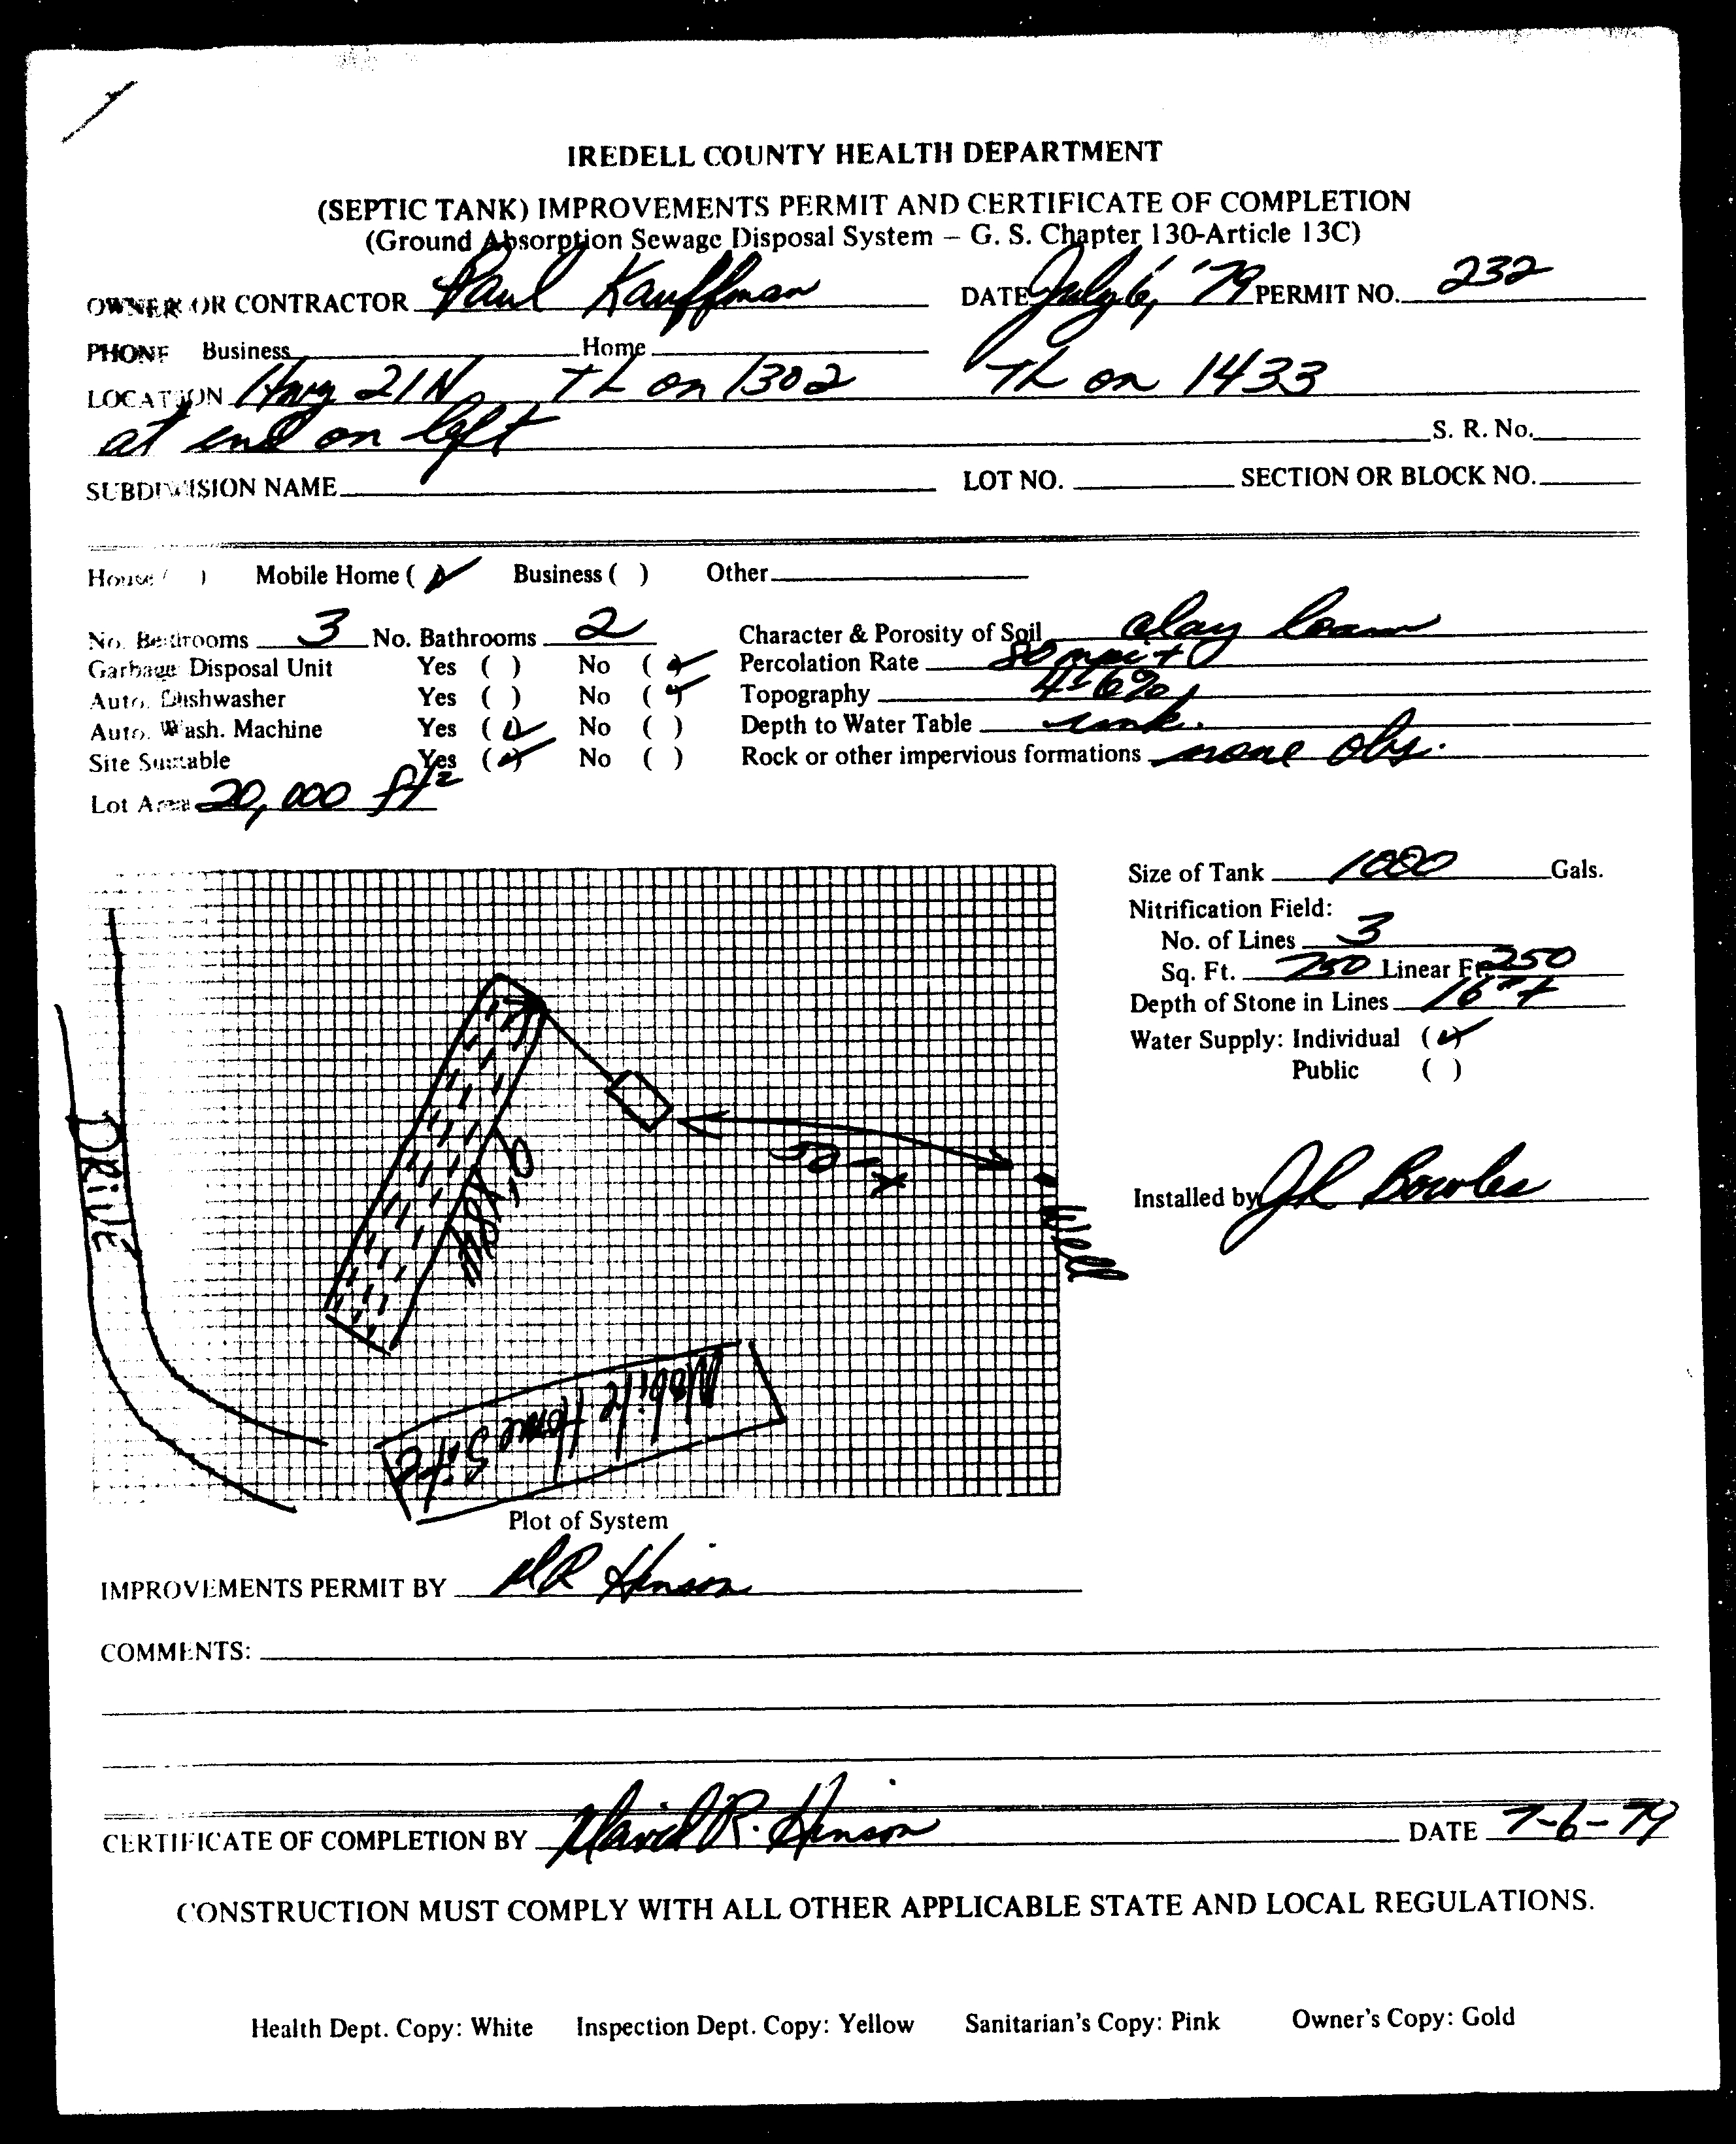 IREDELL COUNTY HEALTH DEPARTMENT
(SEPTIC TANK) IMPROVEMENTS PERMIT AND CERTIFICATE OF COMPLETION
(Ground Absorption Sewage Disposal System – G. S. Chapter 130-Article 13C)
OWNER OR CONTRACTOR Paul Kauffman DATE July 6, '79 PERMIT NO. 232
PHONE Business Home
LOCATION Hwy 21 N TL on 1302 TL on 1433
at end on left S. R. No.
SUBDIVISION NAME LOT NO. SECTION OR BLOCK NO.
House ( ) Mobile Home (✓) Business ( ) Other
No. Bedrooms 3 No. Bathrooms 2 Character & Porosity of Soil clay loam
Garbage Disposal Unit Yes ( ) No (✓) Percolation Rate 80 mpi +
Auto. Dishwasher Yes ( ) No (✓) Topography 4-6%
Auto. Wash. Machine Yes (✓) No ( ) Depth to Water Table unk.
Site Suitable Yes (✓) No ( ) Rock or other impervious formations none obs.
Lot Area 20,000 ft²
Size of Tank 1000 Gals.
Nitrification Field:
No. of Lines 3
Sq. Ft. 750 Linear Ft. 250
Depth of Stone in Lines 16" +
Water Supply: Individual (✓)
Public ( )
Installed by JR Bowles
DRIVE
50 - X
Well
Mobile Home Site
Plot of System
IMPROVEMENTS PERMIT BY DR Hinson
COMMENTS:
CERTIFICATE OF COMPLETION BY David R. Hinson DATE 7-6-79
CONSTRUCTION MUST COMPLY WITH ALL OTHER APPLICABLE STATE AND LOCAL REGULATIONS.
Health Dept. Copy: White Inspection Dept. Copy: Yellow Sanitarian's Copy: Pink Owner's Copy: Gold